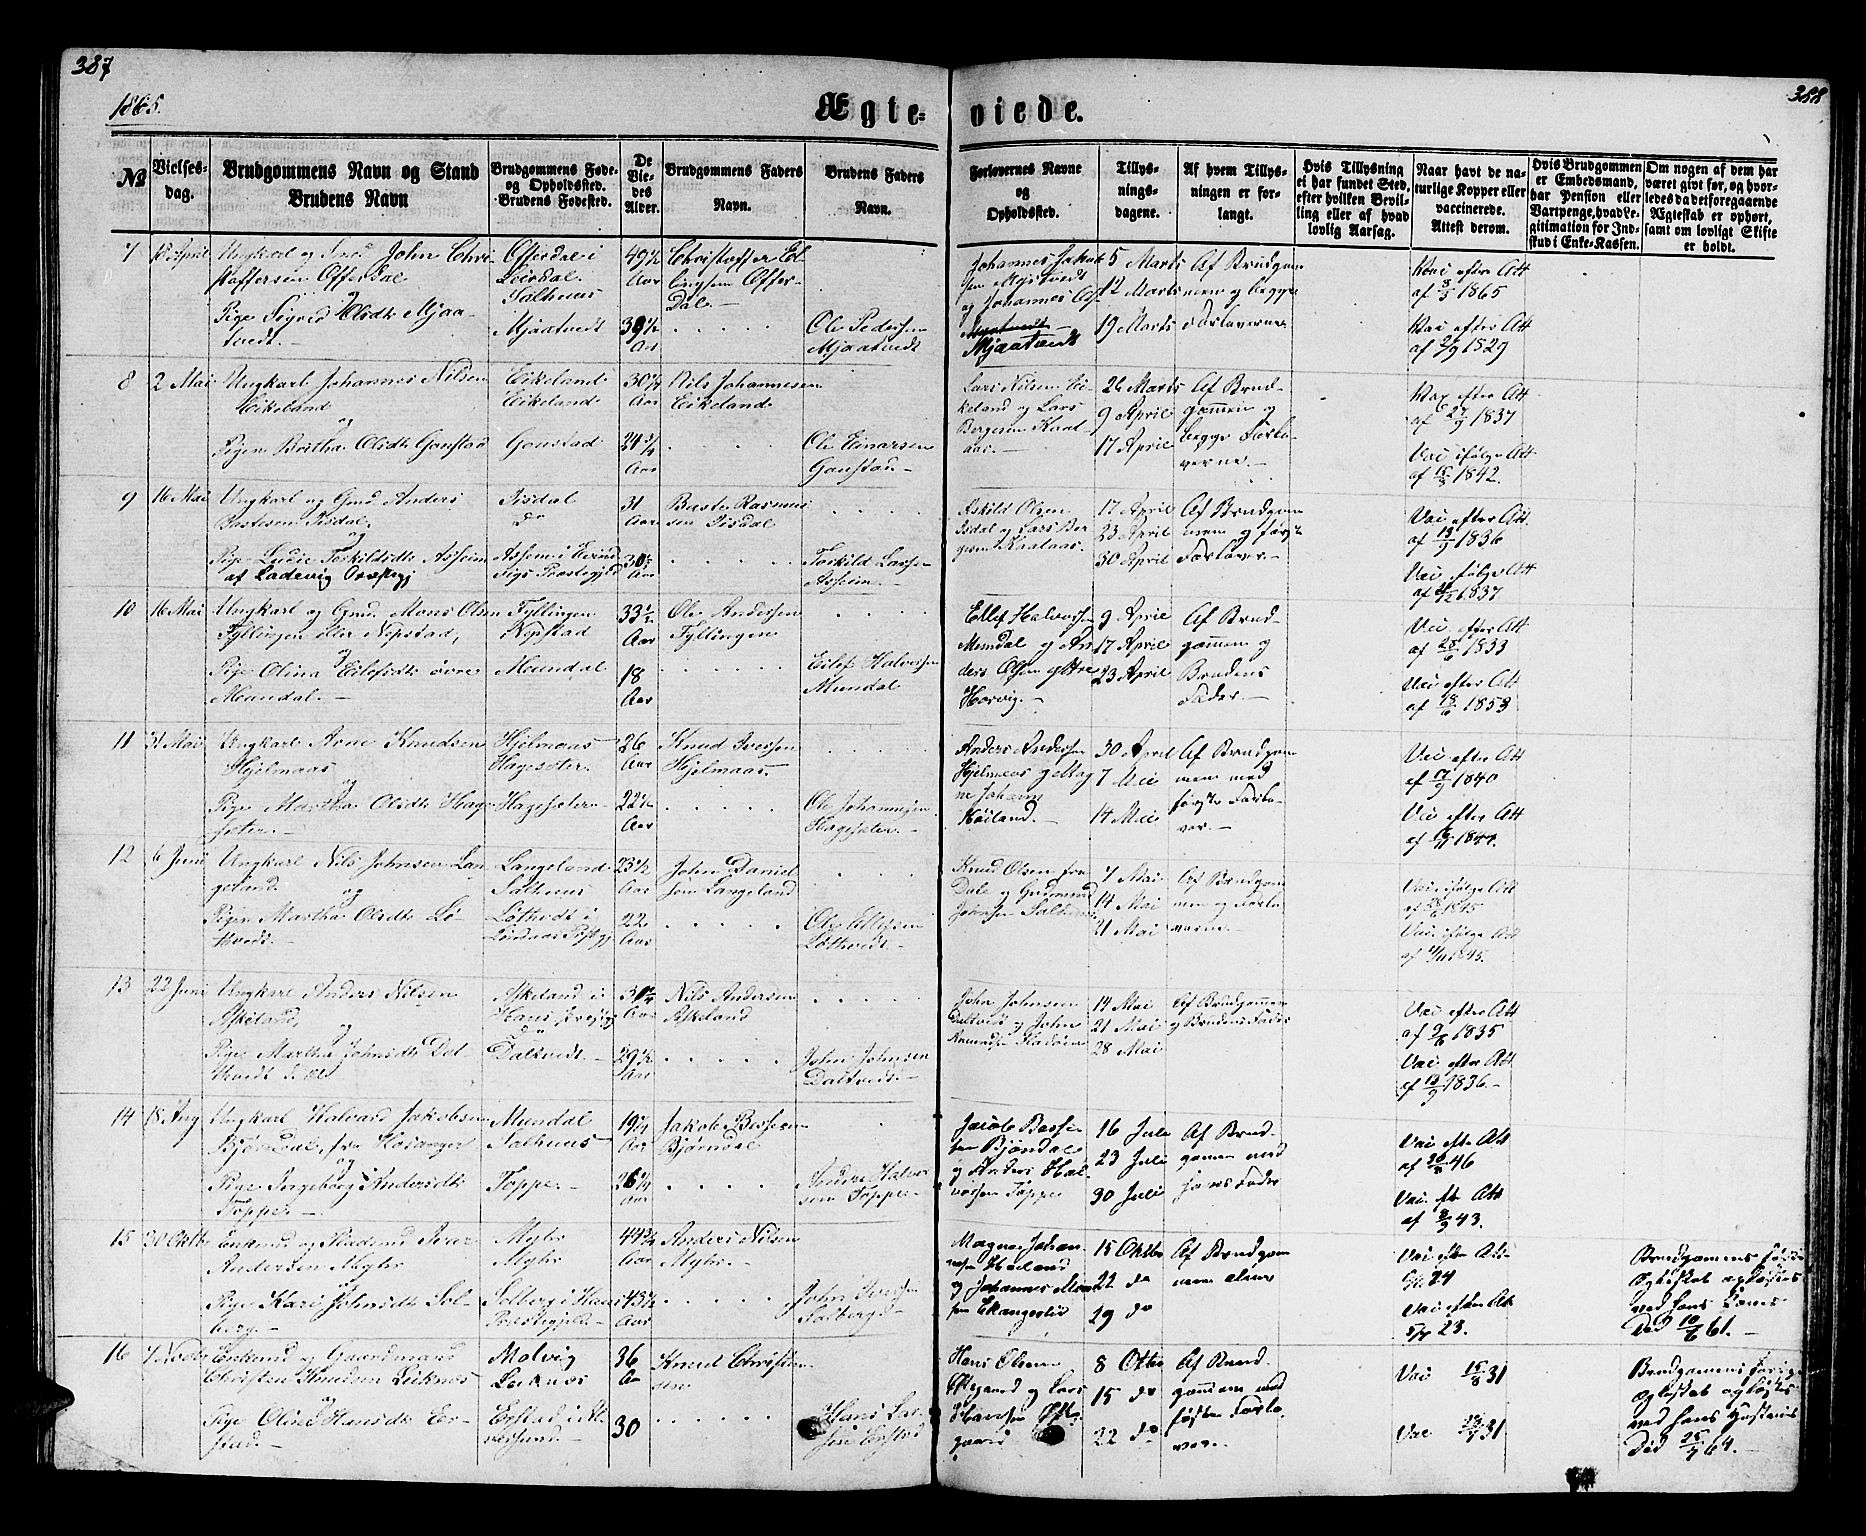 387
388
1865.
Ægte-viede.
№
Vielses-dag.
Brudgommens Navn og Stand
Brudens Navn
Brudgommens Føde- og Opholdssted. Brudens Fødested.
De Viedes Alder.
Brudgommens Faders Navn.
Brudens Faders Navn.
Forlovernes Navne og Opholdssted.
Tillysningsdagene.
Af hvem Tillysningen er forlangt.
Hvis Tillysning ei har fundet Sted, efter hvilken Bevilling eller af hvad lovlig Aarsag.
Naar havt de naturlige Kopper eller vaccinerede. Attest derom.
Hvis Brudgommen er Embedsmand, har Pension eller Vartpenge, hvad Legitimation for Indskud i Enke-Kassen.
Om nogen af dem har været givt før, og hvorledes da det foregaaende Ægteskab er ophørt, samt om lovligt Skifte er holdt.
7
18 April
Ungkarl og John Chri
stoffersen Offerdal
og
Pige Sigrid Olsdtr Mjaa-
tvedt.
Offerdal i
Leirdal.
Salhuus
Mjaatvedt
49½ Aar
39½ Aar
Christoffer Er
lingsen Offer-
dal
Ole Pedersen
Mjaatvedt
Johannes Jakob
sen Mjatvedt
og Johannes
Mjaatvedt
5 Marts
12 Marts
19 Marts
Af Brudgom
men og begge
Forloverne
Vac efter Att
af 1865
Vac efter Att
af 1829
8
2 Mai
Ungkarl Johannes Nilsen
Eikeland
og
Pigen Britha Olsdtr Gonstad
Eikeland
Eikeland
Gonstad
30¼ Aar
24¾ Aar
Nils Johannesen
Eikeland
Ole Einarsen
Gonstad
Lars Nilsen Ei
keland og Lars
Bergesen Kaal
aas.
26 Marts
9 April
17 April
Af Brud-
gommen og
begge Forlo-
verne.
Vac efter Att
af 1837
Vac ifølge Att
af 1842.
9
16 Mai
Ungkarl og Gmd Anders
Bastesen Isdal,
og
Pige Torkildsdtr Asheim
af Ladevig Præstegj
Isdal
do
Asheim i Eivind
vigs Præstegjeld
31 Aar
30 Aar
Baste Rasmus
sen Isdal
Torkild Larsen
Asheim.
Askild Olsen
Isdal og Lars Ber
gesen Kaalaas.
17 April
23 April
30 April
Af Brudgom
men og første
Forlover
Vac efter Att
af 1836
Vac ifølge Att
af 1837.
10
16 Mai
Ungkarl og Gmd. Mons Olsen
Fyllingen eller Nepstad,
og
Pige Olina Eilefsdtr øvre
Mundal.
Fyllingen
Nepstad
Mundal
33½ Aar
18 Aar
Ole Andersen
Fyllingen
Eilef Halvorsen
Mundal
Ellef Halvorsen
Mundal og An
ders Olsen
Horvig.
9 April
17 April
23 April
Af Brud-
gommen og
Brudens
Fader.
Vac efter Att
af 1833
Vac efter Att
af 1853
11
31 Mai
Ungkarl Arne Knudsen
Hjelmaas
og
Pige Martha Olsdtr Hage
sæter.
Hjelmaas
Hagesæter.
Hagesæter
26 Aar
22½ Aar
Knud Iversen
Hjelmaas
Ole Johannesen
Hagesæter.
Anders Andersen
Hjelmaas og Mag
ne Johans
Høiland.
30 April
7 Mai
14 Mai
Af Brudgom
men med
første Forlo-
ver.
Vac efter Att
af 1840
Vac efter Att
af 1844.
12
6 Juni
Ungkarl Nils Johnsen Lan
geland.
og
Pigen Martha Olsdtr Lø
tvedt.
Langeland
Salhuus
Løtvedt i
Lindaas Præstegj
23½ Aar
22 Aar
John Daniel
sen Langeland
Ole Ellefsen
Løtvedt
Knud Olsen fra
Dale og Gudmund
Jonsen Salhuus
7 Mai
14 Mai
21 Mai
Af Brudgom
men og Forlo-
verne.
Vac ifølge Att
af 1845
Vac ifølge Att
af 1845.
13
22 Juni
Ungkarl Anders Nilsen
Askeland,
og
Pige Martha Johnsdtr Dal
tvedt
Askeland i
Hans Præstegj
do
Daltvedt.
31¼ Aar
29½ Aar
Nils Andersen
Askeland
John Johnsen
Daltvedt.
John Johnsen
Daltvedt og John
14 Mai
21 Mai
28 Mai
Af Brudgommen
og Brudens Fader
Vac efter Att
af 1835
Vac efter Att
af 1836.
14
18 Aug
Ungkarl Halvard Jakobsen
Bjørndal, fra Hosanger
og
Pige Ingeborg Andersdtr
Toppe.
Mundal
Salhuus
Toppe.
19¼ Aar
26¼ Aar
Jakob Bessesen
Bjørndal
Anders Halvor
sen Toppe
Jacob Besse
sen Bjøndal
og Anders Hal
vorsen Toppe
16 Juli
23 Juli
30 Juli
Af Brud-
gommen med
hans Fader
Vac efter Att
af 46
Vac eft Att
af 43.
15
30 Oktbr
Enkemd og Pladsmd Ivar
Andersen Myhr
og
Pige Kari Johnsdtr Sol-
berg.
Myhr
Myhr
Solberg i Hans
Præstegjeld.
44¾ Aar
43½ Aar
Anders Nilsen
Myhr.
John Iversen
Solberg
Magne Johan
nesen Høiland
og Johannes Mon
sen
15 Oktbr
22 do
29 do
Af Brudgom
men alene
Vac efter Att
24
Vac efter At
23.
Brudgomens første
Egteskab opløstes
ved hans Kones
Død 10/6 61.
16
7 Novbr
Enkemd og Gaardmand
Christen Knudsen Leiknes
og
Pige Oline Hansdtr Eer-
stad.
Molvig
Leiknes
Eerstad i Al
versund.
36 Aar
30
Knud Christen-
sen
Hans Lar-
sen Eerstad
Hans Olsen
og Lars
Hansen
gaard
8 Octbr
15 do
22 do
Af Brud-
gommen med
første Forlo-
ver.
Vac 15/8 31
Vac 31
Brudgomens forrige
egteskab opløstes
ved hans Hustrues
Død 64.